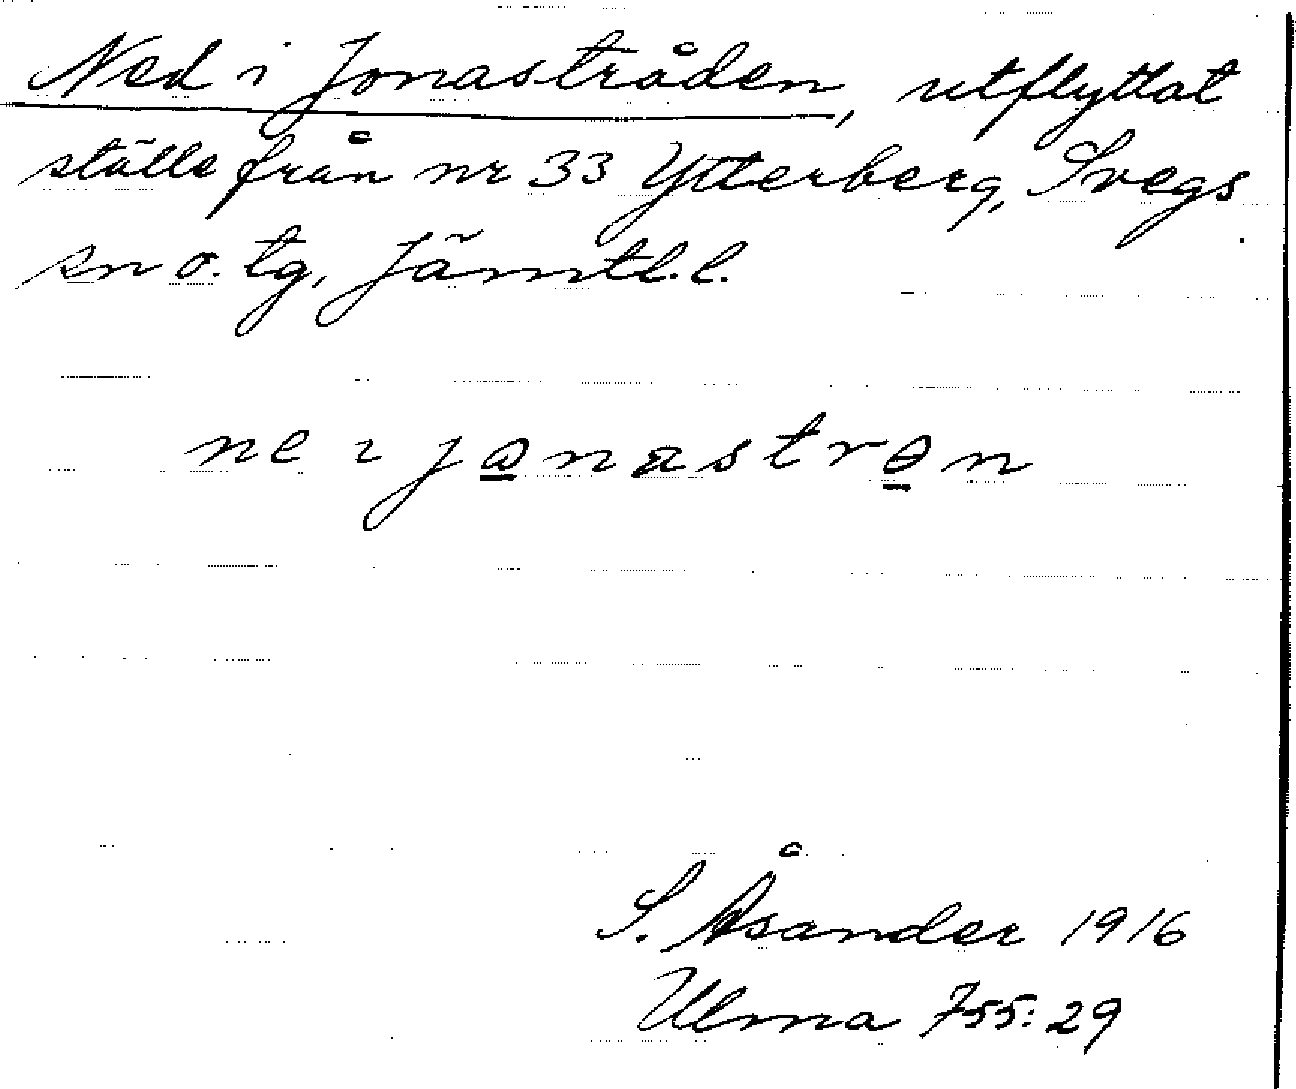 Ned i Jonastråden, utflyttat
ställe från nr 33 Ytterberg, Svegs
sn o. tg, Jämtl.l.
ne i jonastrən
S. Åsander 1916
Ulma 755:29